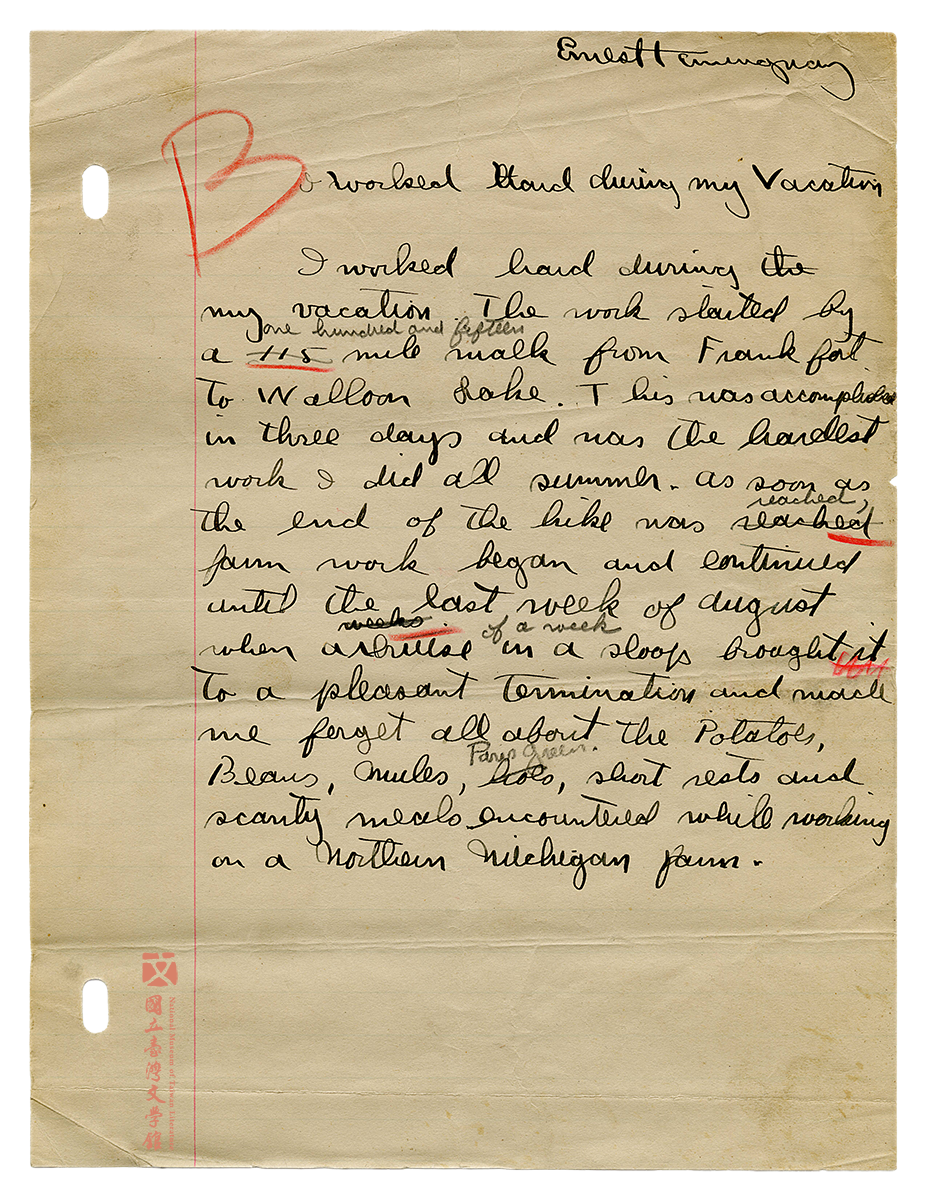 Ernest Hemingway
B
I worked Hard during my Vacation
I worked hard during the
my vacation. The work started by
one hundred and fifteen
a 115 mile walk from Frankfort
to Walloon Lake. This was accomplished
in three days and was the hardest
work I did all summer. As soon as
reached,
the end of the hike was reached
farm work began and continued
until the last week of August
weeks of a week
when a cruise in a sloop brought it
to a pleasant termination and made
me forget all about the Potatoes,
Paris Green.
Beans, Mules, hoes, short rests and
scanty meals encountered while working
on a Northern Michigan farm.
國立臺灣文學館
National Museum of Taiwan Literature